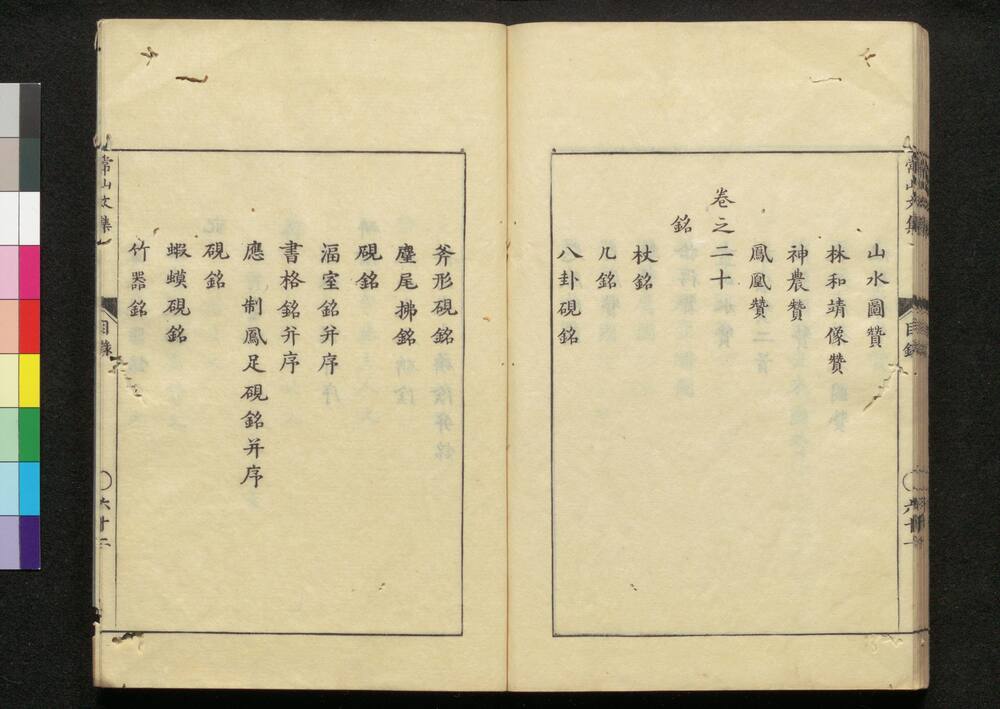 山水圖贊
林和靖像贊
神農贊
鳳凰贊
卷之二十
銘
杖銘
几銘
八卦硯銘
斧形硯銘
麈尾拂銘
硯銘
湢室銘并序
書格銘并序
應 制鳳足硯銘并序
硯銘
蝦蟆硯銘
竹器銘
常山文集
目錄
六十二